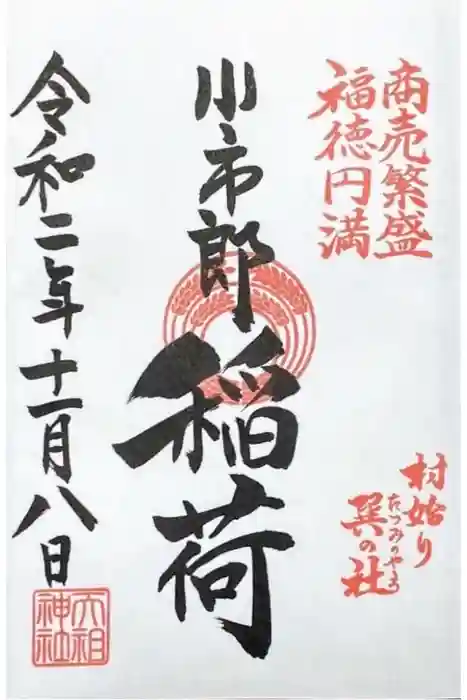 商売繁盛
福徳円満
村始り
巽の社
たつみのやしろ
小市郎稲荷
令和二年十一月八日
六祖
神社